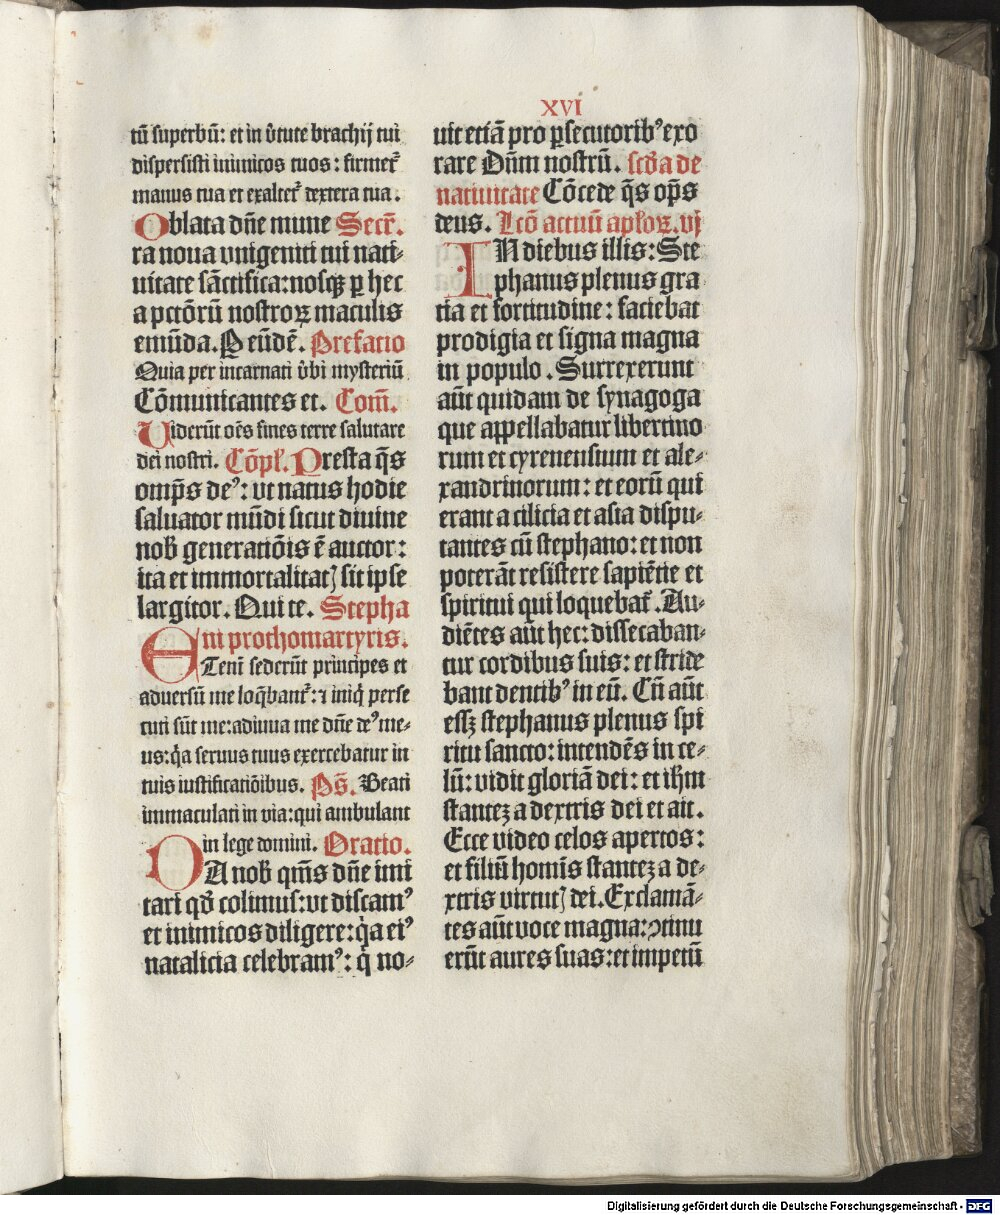 XVI
tū superbū: et in v̓tute brachij tui
dispersisti inimicos tuos: firmet᷑
manus tua et exaltet᷑ dextera tua.
Oblata dn̄e mune Secr̄.
ra noua vnigeniti tui nati⸗
uitate sāctifica: nosqꝫ ꝑ hec
a pctōrū nostroꝝ maculis
emūda. P eūdē. Prefatio
Quia per incarnati v̓bi mysteriū
Cōmunicantes et. Com̄.
Uiderūt oēs fines terre salutare
dei nostri. Cōpl. Presta q̄s
omp̄s deꝰ: vt natus hodie
saluator mūdi sicut diuine
nob̄ generatiōis ē auctor:
ita et immortalitatꝭ sit ipse
largitor. Qui te. Stepha
ni prothomartyris.
ETeni sederūt principes et
aduersū me loq̄bant᷑: ⁊ iniq̇ perse
cuti sūt me: adiuua me dn̄e deꝰ me⸗
us: q̇a seruus tuus exercebatur in
tuis iustificatiōibus. Ps̄. Beati
immaculati in via: qui ambulant
in lege domini. Oratio.
DA nob̄ qm̄s dn̄e imi
tari qd̄ colimus: vt discamꝰ
et inimicos diligere: q̇a eiꝰ
natalicia celebramꝰ: q̇ no⸗
uit etiā pro ꝑsecutoribꝰ exo
rare Dn̄m nostrū. scd̄a de
natiuitate Cōcede q̄s op̄s
deus. Lcō actuū aplōꝝ. vj
IN diebus illis: Ste
phanus plenus gra
tia et fortitudine: faciebat
prodigia et signa magna
in populo. Surrexerunt
aūt quidam de synagoga
que appellabatur libertino
rum et cyrenensium et ale⸗
xandrinorum: et eorū qui
erant a cilicia et asia dispu⸗
tantes cū stephano: et non
poterāt resistere sapiētie et
spiritui qui loquebat᷑. Au⸗
diētes aūt hec: dissecaban⸗
tur cordibus suis: et stride
bant dentibꝰ in eū. Cū aūt
essꝫ stephanus plenus spi
ritu sancto: intendēs in ce⸗
lū: vidit gloriā dei: et ih̄m
stanteꝫ a dextris dei et ait.
Ecce video celos apertos:
et filiū homīs stanteꝫ a de⸗
xtris virtutꝭ dei. Exclamā⸗
tes aūt voce magna: ꝯtinu
erūt aures suas: et impetū
Digitalisierung gefördert durch die Deutsche Forschungsgemeinschaft - DFG